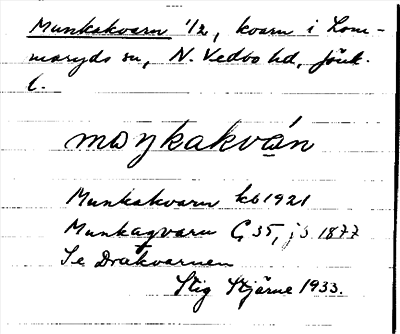 Munkakvarn 1/2, kvarn i Lom-
maryds sn, N. Vedbo hd, Jönk.
l.
maŋkakvạ́n
Munkakvarn kb 1921
Munkaqvarn G 35, js 1877
Se Drakvarnen
Stig Stjärne 1933.